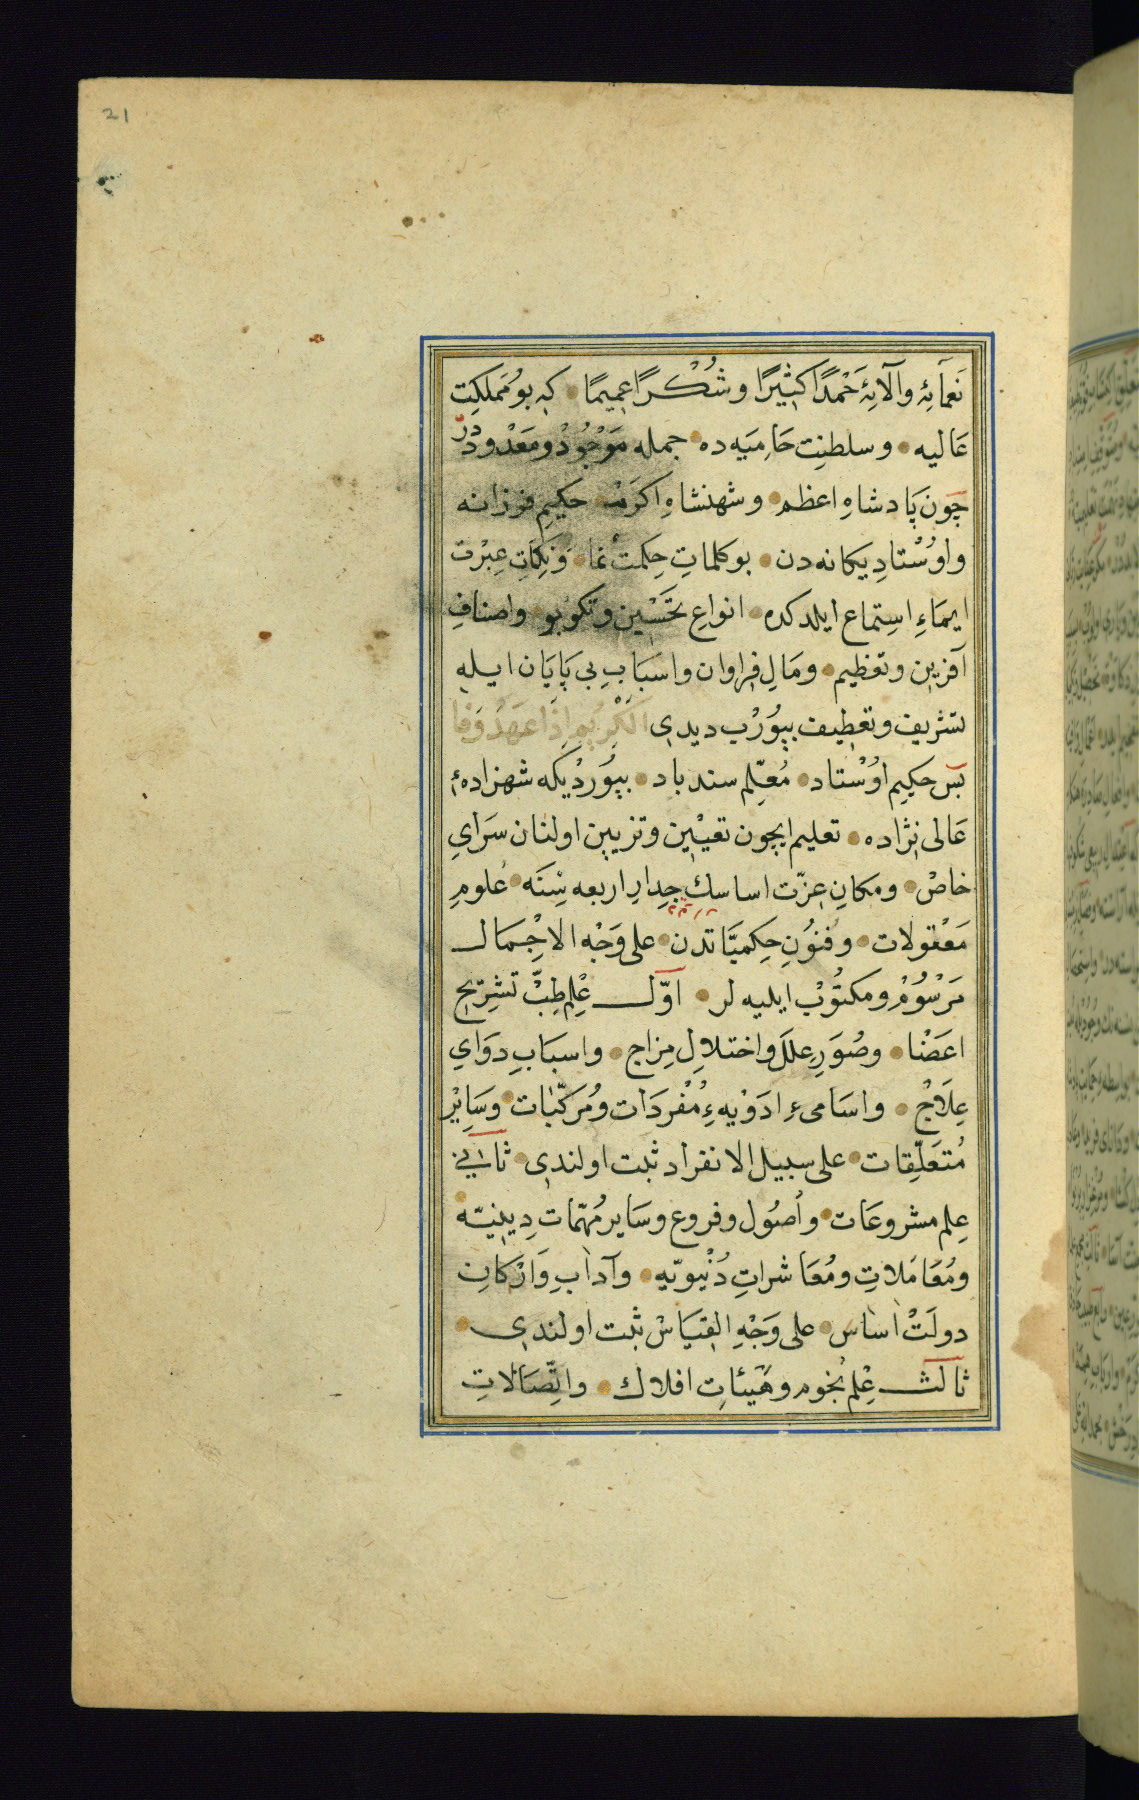 21
نَعْمَائِهِ وَآلَائِهِ حَمْدًا كَثِيرًا وَشُكْرًا عَمِيمًا كه بو مَملكِت
عَاليه وسلطنِت حَامِيَه ده جمله مَوْجُودْ و مَعْدُوددُر
چون پَادشاهِ اعظم و شهنشاهِ اكرَمْ حكيمِ فرزانه
و اوُسْتادِ يكانه دن بو كلماتِ حِكمتْ نما وَنِكاتِ عِبْرت
ايمَاءِ اسِتماع ايلدكده انواعِ تحَسْين و تكوبو واصنافِ
آفرين وتعَظيم ومَالِ فراوان واسَبَابِ بى پَايَان ايله
تشريف وتعَطِيف بيوُرُب ديدى اَلْكَرِيم اِذَا عَهَدَ وَفَا
پس حكيمِ اوُسْتاد مُعَلِّم سندباد بيوُردْيكه شهزادهٔ
عَالى نژاده تعليم ايچون تعيْين وتزيين اولنان سَراىِ
خاصْ ومكانِ عِزّت اساسك جِدارِ اربعه سِنَه عُلومِ
مَعْقولات وفُنوُنِ حِكميّاتدن على وَجْه الاِجْمَال
مَرْسُومْ ومكتُوبْ ايليه لر اوّل عِلْمِ طِبّ تشِريح
اعَضْا وصُوَرِ عِللَ واختلالِ مِزاج واسبَابِ دوَاىِ
عِلَاجْ واسَامىءِ ادَوْيه ءِ مُفْردَات ومُركّبات وسَايْر
مُتعَلِّقات على سبيل الانفراد ثبت اولندى ثانى
عِلم مشروعَات واُصوُل وفروع وسَاير مُهِمّات دِينيّه
ومُعَامَلاتِ ومُعَاشراتِ دُنْيويّه وآدابِ وَارَكانِ
دولَتْ اسَاس على وَجْهِ القيَاسْ ثبت اولندى
ثالث عِلْم نجُوم وهَيئاتِ افلاك واتِّصَالاتِ